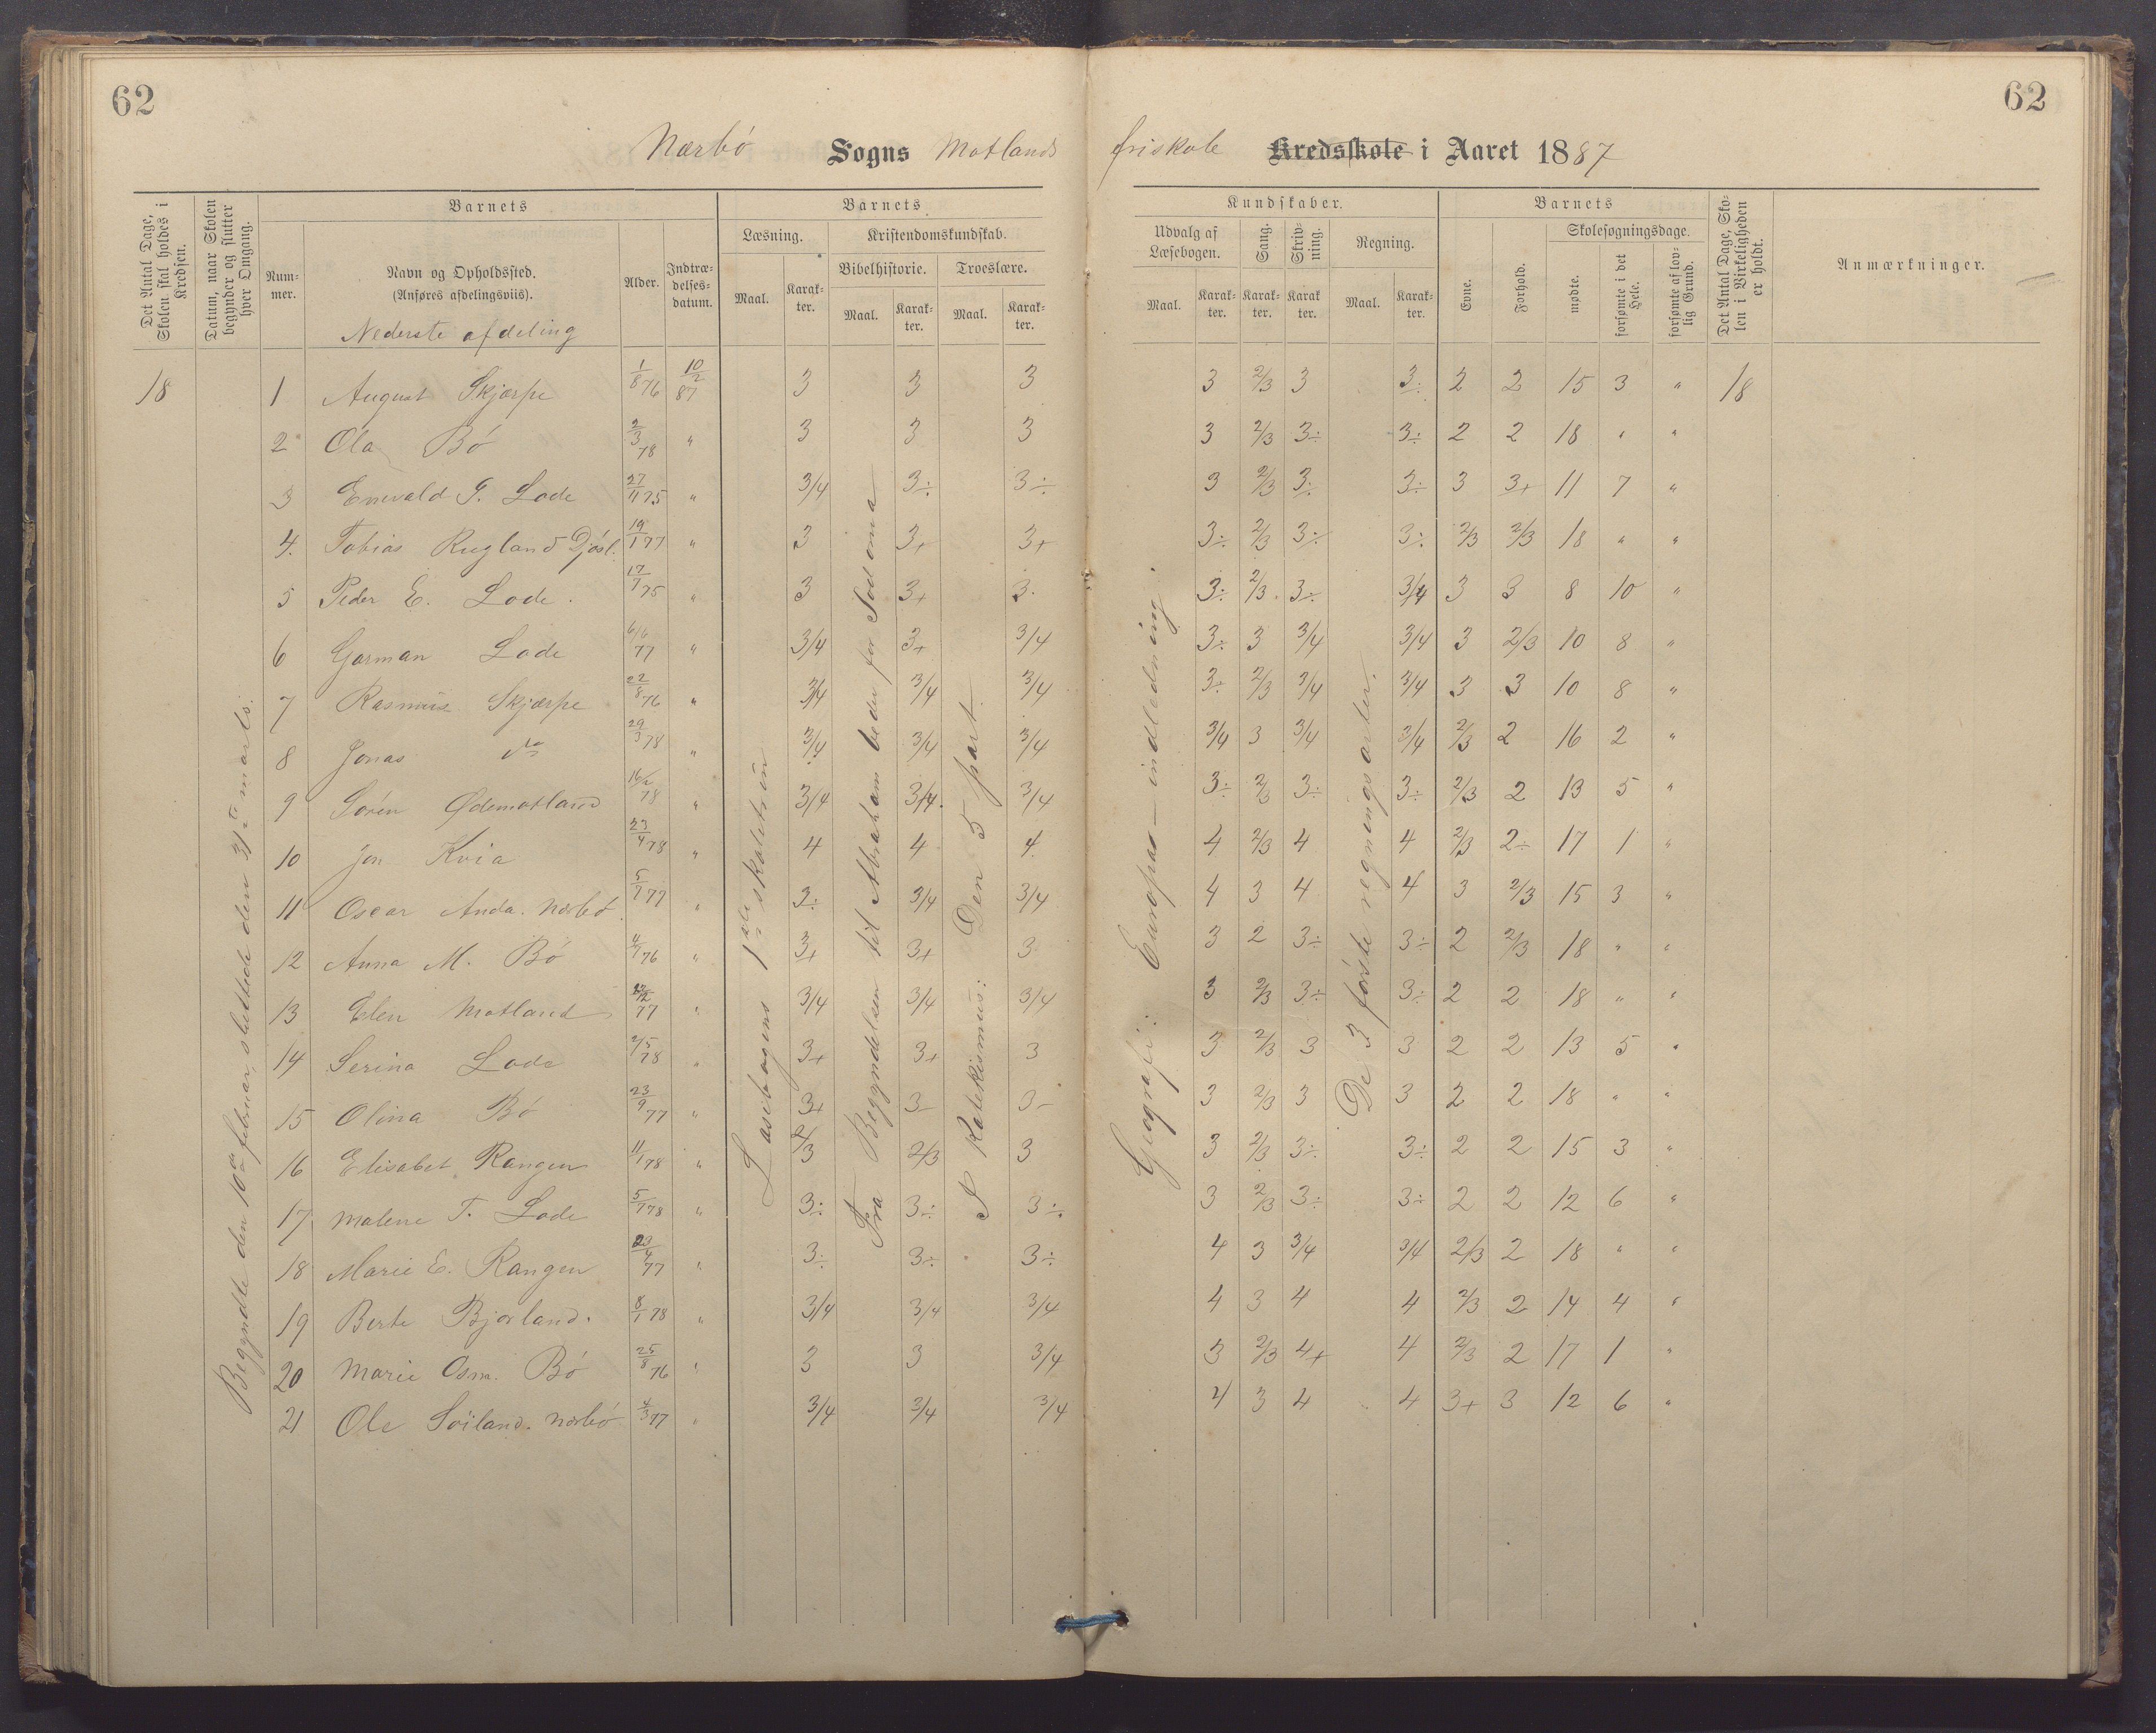 62
62
Nærbö Sogns Motlands friskole Kredsskole i Aaret 1887
Det Antal Dage, Skolen skal holdes i Kredsen.
Datum, naar Skolen begynder og slutter hver Omgang.
Barnets
Nummer.
Navn og Opholdssted. (Anføres afdelingsviis).
Nederste afdeling
Alder.
Indtrædelses-datum.
Barnets
Læsning.
Maal.
Karakter.
Kristendomskundskab.
Bibelhistorie.
Maal.
Karakter.
Troeslære.
Maal.
Karakter.
Kundskaber.
Udvalg af Læsebogen.
Maal.
Karakter.
Sang.
Karakter.
Skrivning.
Karakter.
Regning.
Maal.
Karakter.
Barnets
Evne.
Forhold.
Skolesøgningsdage.
mødte.
forsømte i det Hele.
forsømte af lovlig Grund.
Det Antal Dage, Skolen i Virkeligheden er holdt.
Anmærkninger.
18 1 August Skjærpe 1/8 76 10/2 87 3 3 3 3 2/3 3 3÷ 2 2 15 3 " 18
2 Ola Bö 2/3 78 " 3 3 3 3 2/3 3÷ 3÷ 2 2 18 " "
3 Enevald G. Lode 27/11 75 " 3/4 3÷ 3÷ 3 2/3 3÷ 3÷ 3 3+ 11 7 "
4. Tobias Rugland Djösl. 19/1 77 " 3 3+ 3+ 3÷ 2/3 3÷ 3÷ 2/3 2/3 18 " "
5 Peder E. Lode. 17/7 75 " 3 3+ 3. 3÷ 2/3 3÷ 3/4 3 3 8 10 "
6 Garman Lode 6/6 77 " 3/4 3+ 3/4 3÷ 3 3/4 3/4 3 2/3 10 8 "
7 Rasmus Skjærpe 22/8 76 " 3/4 3/4 3/4 3÷ 2/3 3/4 3/4 3 3 10 8 "
8 Jonas do 29/3 78 " 3/4 3/4 3/4 3/4 3 3/4 3/4 2/3 2 16 2 "
9 Sören Ødemotland 16/2 78 " 3/4 3/4. 3/4 3÷ 2/3 3÷ 3÷ 2/3 2 13 5 "
10 Jon Kvia 23/4 78 " 4 4 4. 4 2/3 4 4 2/3 2÷ 17 1 "
11 Oscar Anda. Nærbö. 5/7 77 " 3÷ 3/4 3/4 4 3 4 4 3 2/3 15 3 "
12 Anna M. Bö 4/7 76 " 3+ 3+ 3 3 2 3÷ 3÷ 2 2/3 18 " "
13 Elen Motland 27/12 77 " 3/4 3/4 3/4 3 2/3 3÷ 3÷ 2 2 18 " "
14 Serina Lode 2/5 78 " 3+ 3+ 3 3 2/3 3 3 2 2 13 5 "
15 Olina Bö 23/9 77 " 3+ 3- 3- 3 2/3 3 3 2 2 18 " "
16 Elisabet Rangen 11/1 78 " 2/3 2/3 3 3 2/3 3÷ 3÷ 2 2 15 3 "
17 Malene T. Lode 5/1 78 " 3÷ 3÷ 3÷ 3 2/3 3÷ 3÷ 2 2 12 6 "
18 Marie E. Rangen 23/4 77 " 3÷ 3÷ 3÷ 4 3 3/4 3/4 2/3 2 18 " "
19 Berte Bjorland. 8/1 78 " 3/4 3/4 3/4 4 3 4 4 2/3 2 14 4 "
20 Marie Osm. Bö 25/8 76 " 3 3 3/4 3 2/3 4+ 4 2/3 2 17 1 "
21 Ole Söiland. Nærbö 4/3 77 " 3/4 3/4 3/4 4 3 4 4 3+ 3 12 6 "
Begyndte den 10de februar, sluttede den 31te marts.
Læsebogens 1ste skoletrin
Fra Begyndelsen til Abraham beder for Sodoma
I Katekismus: Den 5 part.
Geografi: Europas indledning.
De 3 förste regningsarter.